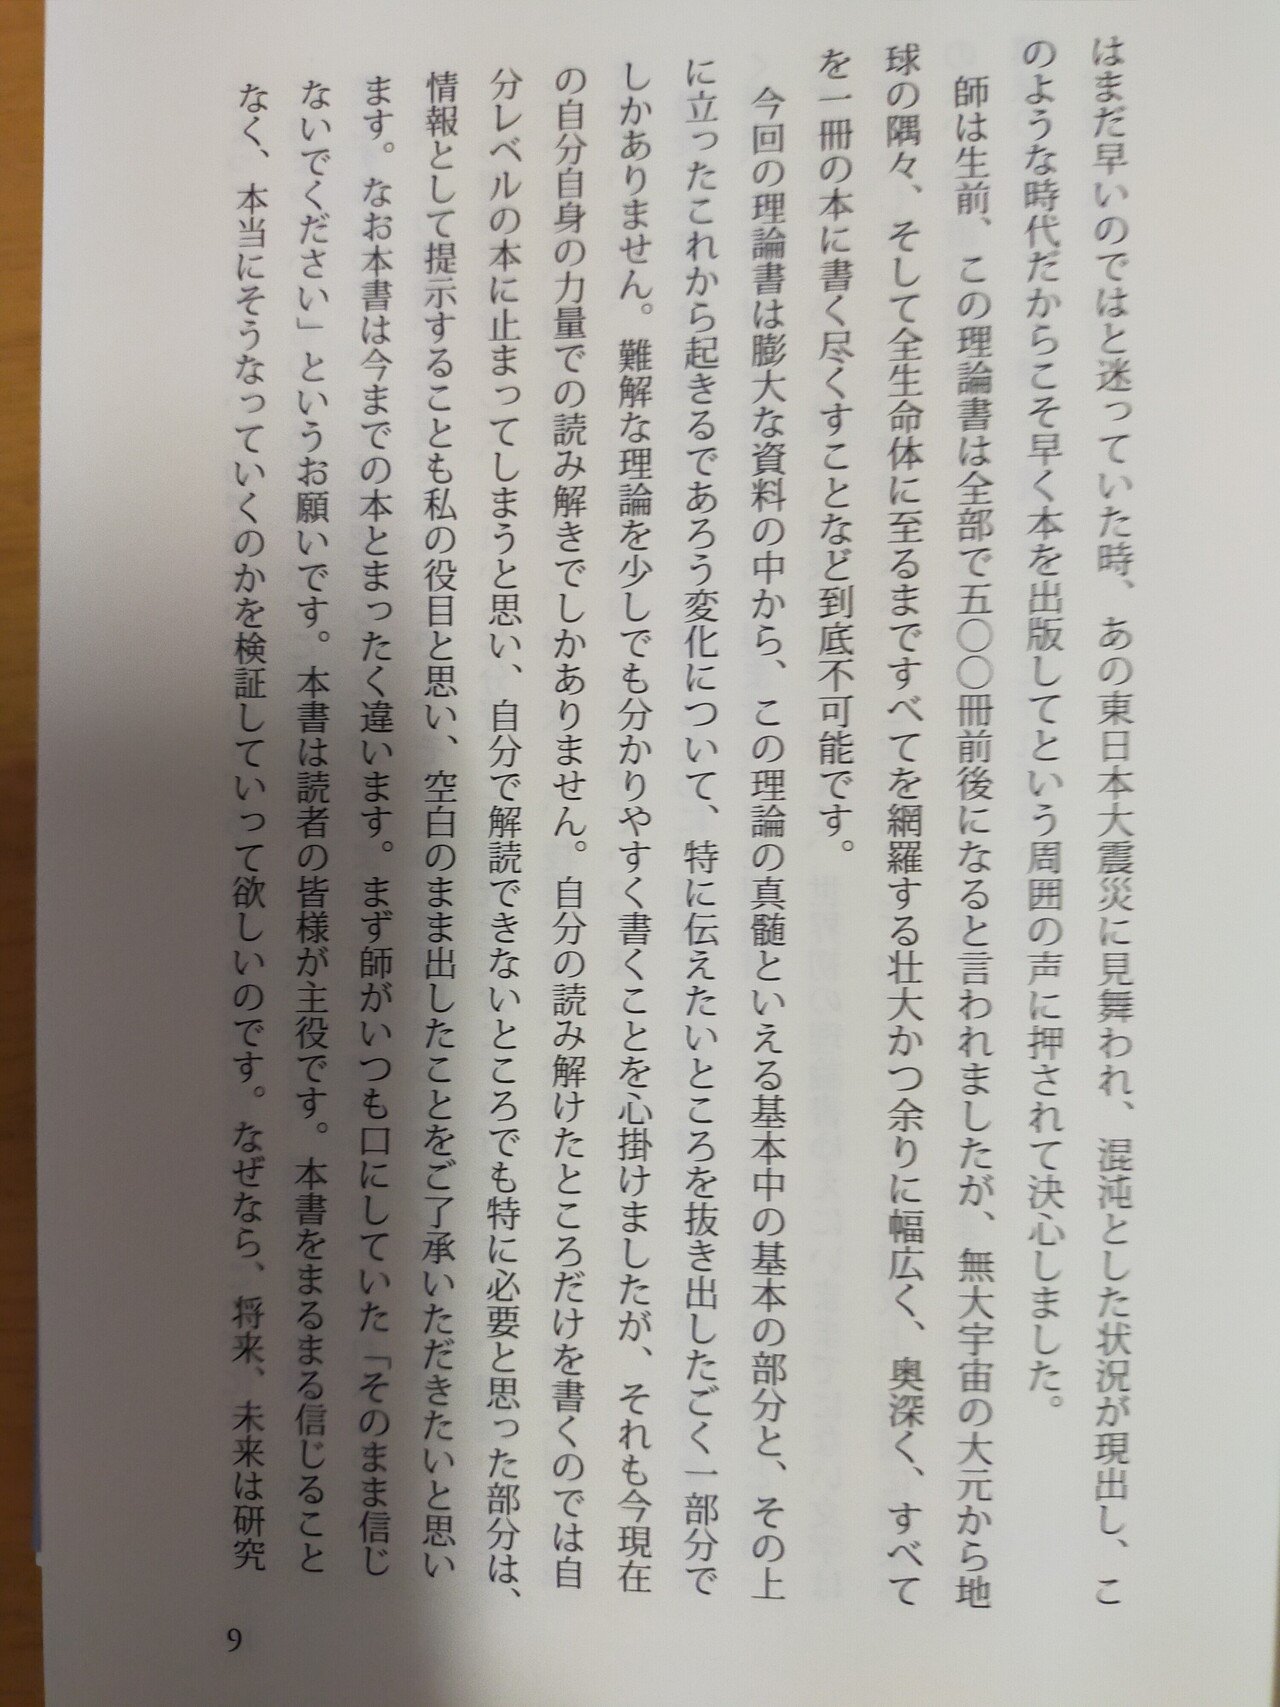 はまだ早いのではと迷っていた時、あの東日本大震災に見舞われ、混沌とした状況が現出し、こ
のような時代だからこそ早く本を出版してという周囲の声に押されて決心しました。
師は生前、この理論書は全部で五〇〇冊前後になると言われましたが、無大宇宙の大元から地
球の隅々、そして全生命体に至るまですべてを網羅する壮大かつ余りに幅広く、奥深く、すべて
を一冊の本に書く尽くすことなど到底不可能です。
今回の理論書は膨大な資料の中から、この理論の真髄といえる基本中の基本の部分と、その上
に立ったこれから起きるであろう変化について、特に伝えたいところを抜き出したごく一部分で
しかありません。難解な理論を少しでも分かりやすく書くことを心掛けましたが、それも今現在
の自分自身の力量での読み解きでしかありません。自分の読み解けたところだけを書くのでは自
分レベルの本に止まってしまうと思い、自分で解読できないところでも特に必要と思った部分は、
情報として提示することも私の役目と思い、空白のまま出したことをご了承いただきたいと思い
ます。なお本書は今までの本とまったく違います。まず師がいつも口にしていた「そのまま信じ
ないでください」というお願いです。本書は読者の皆様が主役です。本書をまるまる信じること
なく、本当にそうなっていくのかを検証していって欲しいのです。なぜなら、将来、未来は研究
9